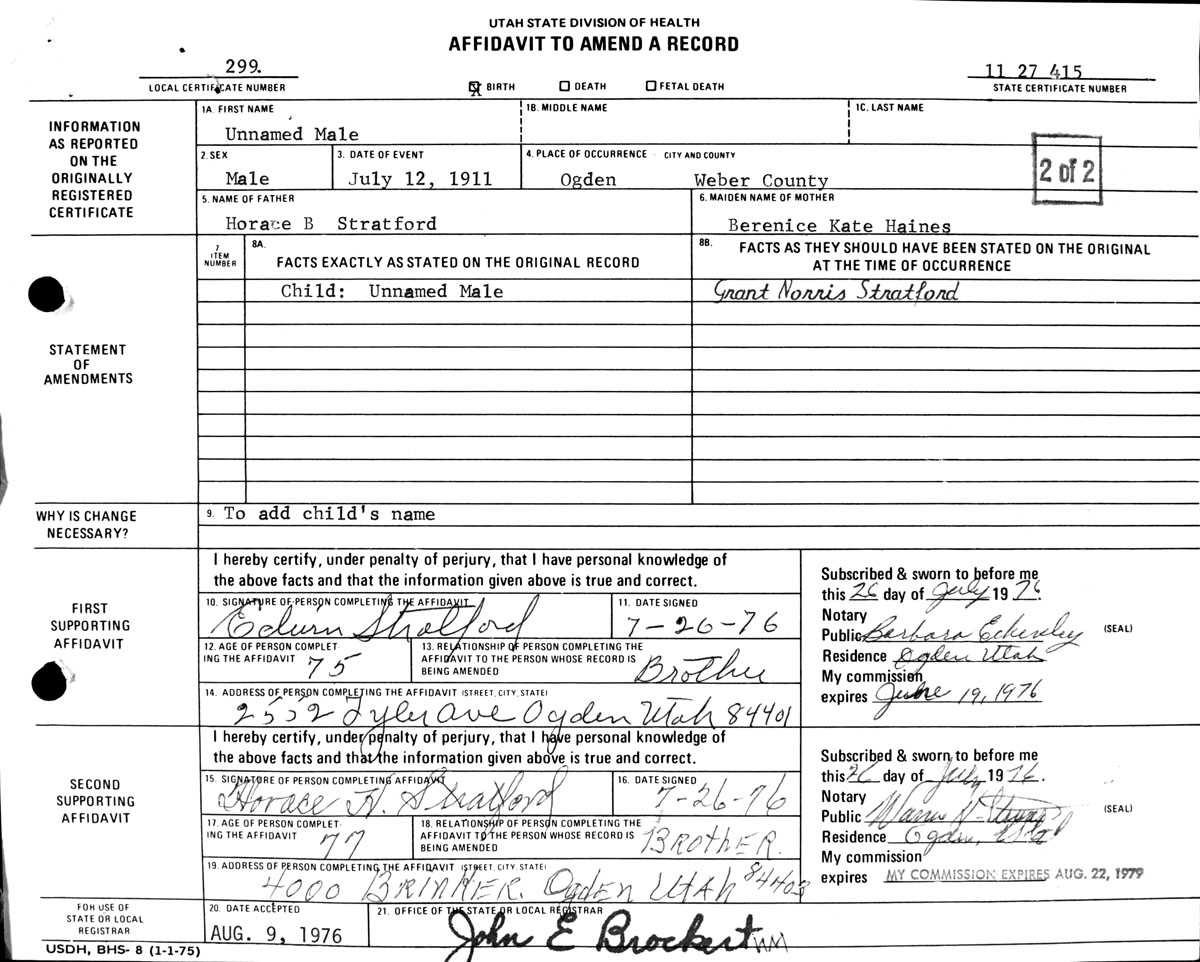 UTAH STATE DIVISION OF HEALTH
AFFIDAVIT TO AMEND A RECORD
299.
LOCAL CERTIFICATE NUMBER
X BIRTH DEATH FETAL DEATH
11 27 415
STATE CERTIFICATE NUMBER
INFORMATION AS REPORTED ON THE ORIGINALLY REGISTERED CERTIFICATE
1A. FIRST NAME 1B. MIDDLE NAME 1C. LAST NAME
Unnamed Male
2. SEX 3. DATE OF EVENT 4. PLACE OF OCCURRENCE CITY AND COUNTY
Male July 12, 1911 Ogden Weber County
2 of 2
5. NAME OF FATHER 6. MAIDEN NAME OF MOTHER
Horace B Stratford Berenice Kate Haines
STATEMENT OF AMENDMENTS
7 ITEM NUMBER
8A. FACTS EXACTLY AS STATED ON THE ORIGINAL RECORD
8B. FACTS AS THEY SHOULD HAVE BEEN STATED ON THE ORIGINAL
AT THE TIME OF OCCURRENCE
Child: Unnamed Male Grant Norris Stratford
WHY IS CHANGE NECESSARY?
9. To add child's name
FIRST SUPPORTING AFFIDAVIT
I hereby certify, under penalty of perjury, that I have personal knowledge of
the above facts and that the information given above is true and correct.
10. SIGNATURE OF PERSON COMPLETING THE AFFIDAVIT 11. DATE SIGNED
Edwin Stratford 7-26-76
12. AGE OF PERSON COMPLETING THE AFFIDAVIT 75
13. RELATIONSHIP OF PERSON COMPLETING THE AFFIDAVIT TO THE PERSON WHOSE RECORD IS BEING AMENDED Brother
14. ADDRESS OF PERSON COMPLETING THE AFFIDAVIT (STREET, CITY, STATE)
2552 Tyler Ave Ogden Utah 84401
Subscribed & sworn to before me
this 26 day of July 1976.
Notary
Public Barbara Eckersley (SEAL)
Residence Ogden Utah
My commission
expires June 19, 1976
SECOND SUPPORTING AFFIDAVIT
I hereby certify, under penalty of perjury, that I have personal knowledge of
the above facts and that the information given above is true and correct.
15. SIGNATURE OF PERSON COMPLETING AFFIDAVIT 16. DATE SIGNED
Horace H. Stratford 7-26-76
17. AGE OF PERSON COMPLETING THE AFFIDAVIT 77
18. RELATIONSHIP OF PERSON COMPLETING THE AFFIDAVIT TO THE PERSON WHOSE RECORD IS BEING AMENDED BROTHER.
19. ADDRESS OF PERSON COMPLETING THE AFFIDAVIT (STREET, CITY, STATE)
4000 BRINKER. OGDEN UTAH 84403
Subscribed & sworn to before me
this 26 day of July 1976.
Notary
Public (SEAL)
Residence Ogden,
My commission
expires MY COMMISSION EXPIRES AUG. 22, 1979
FOR USE OF STATE OR LOCAL REGISTRAR
20. DATE ACCEPTED 21. OFFICE OF THE STATE OR LOCAL REGISTRAR
AUG. 9, 1976 John E Brockert
USDH, BHS- 8 (1-1-75)